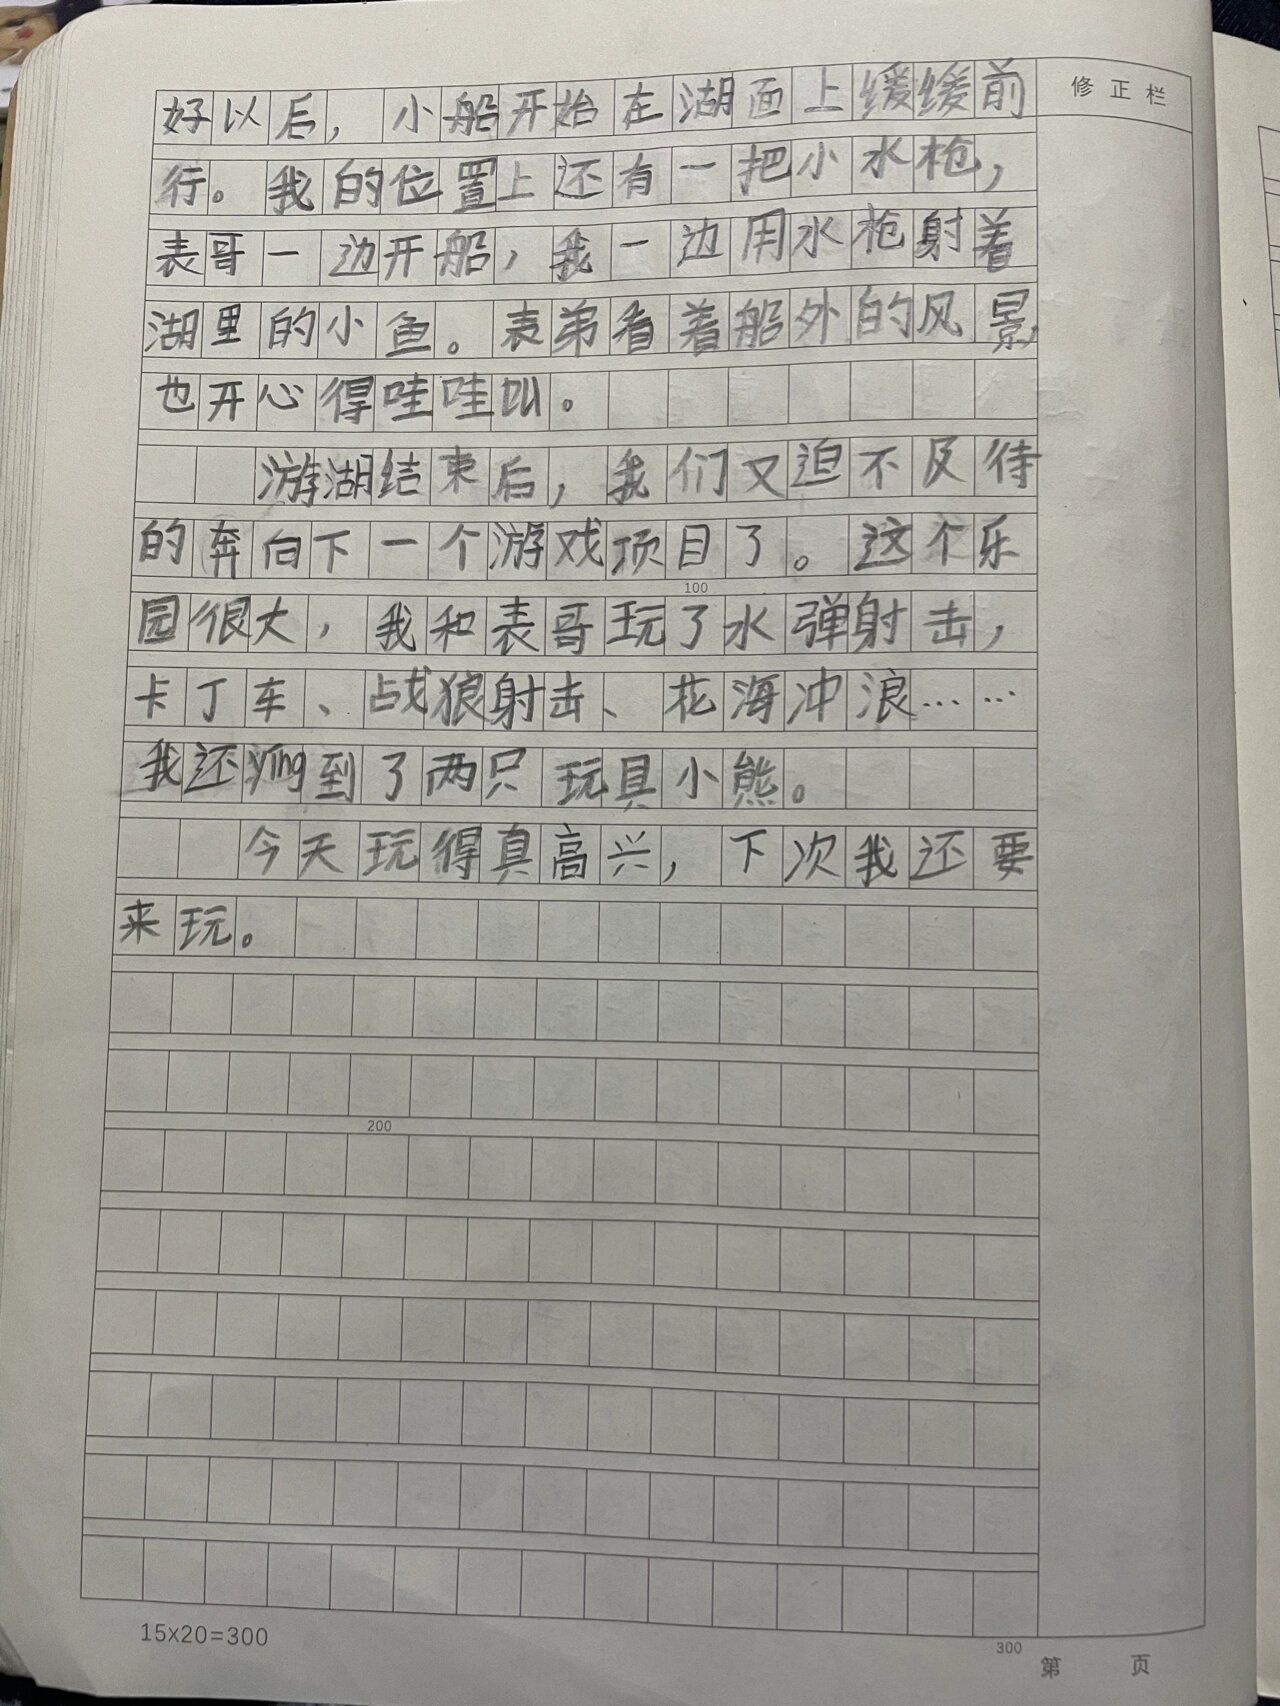 修正栏
好以后，小船开始在湖面上缓缓前
行。我的位置上还有一把小水枪，
表哥一边开船，我一边用水枪射着
湖里的小鱼。表弟看着船外的风景，
也开心得哇哇叫。
游湖结束后，我们又迫不及待
的奔向下一个游戏项目了。这个乐
100
园很大，我和表哥玩了水弹射击，
卡丁车、战狼射击、花海冲浪……
我还yíng到了两只玩具小熊。
今天玩得真高兴，下次我还要
来玩。
200
15×20=300
300
第 页